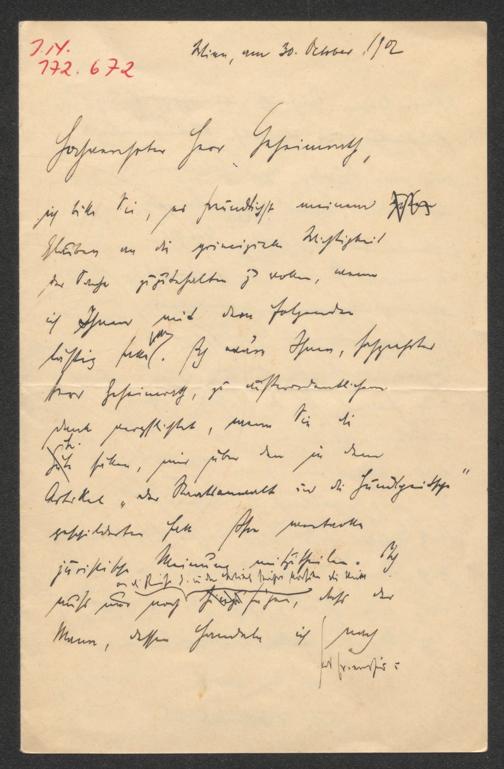 J.N.
172.672
Wien, am 30. October 1902
Hochverehrter Herr Geheimrath,
ich bitte Sie, es freundlichst meinem
Glauben an die principielle Wichtigkeit
der Sache zuzuhalten zu wollen, wenn
ich Ihnen mit dem folgenden
lästig falle. Ich wäre Ihnen, hochgeehrter
Herr Geheimrath, zu außerordentlichem
Dank verpflichtet, wenn Sie die
Güte hätten, mir über den in dem
Artikel „Der Staatsanwalt und die Hundspeitsche"
geschilderten Fall Ihre werthe
juristische Meinung mitzutheilen. Ich
muß nur noch fügen, daß der
Mann, dessen Handeln ich nach